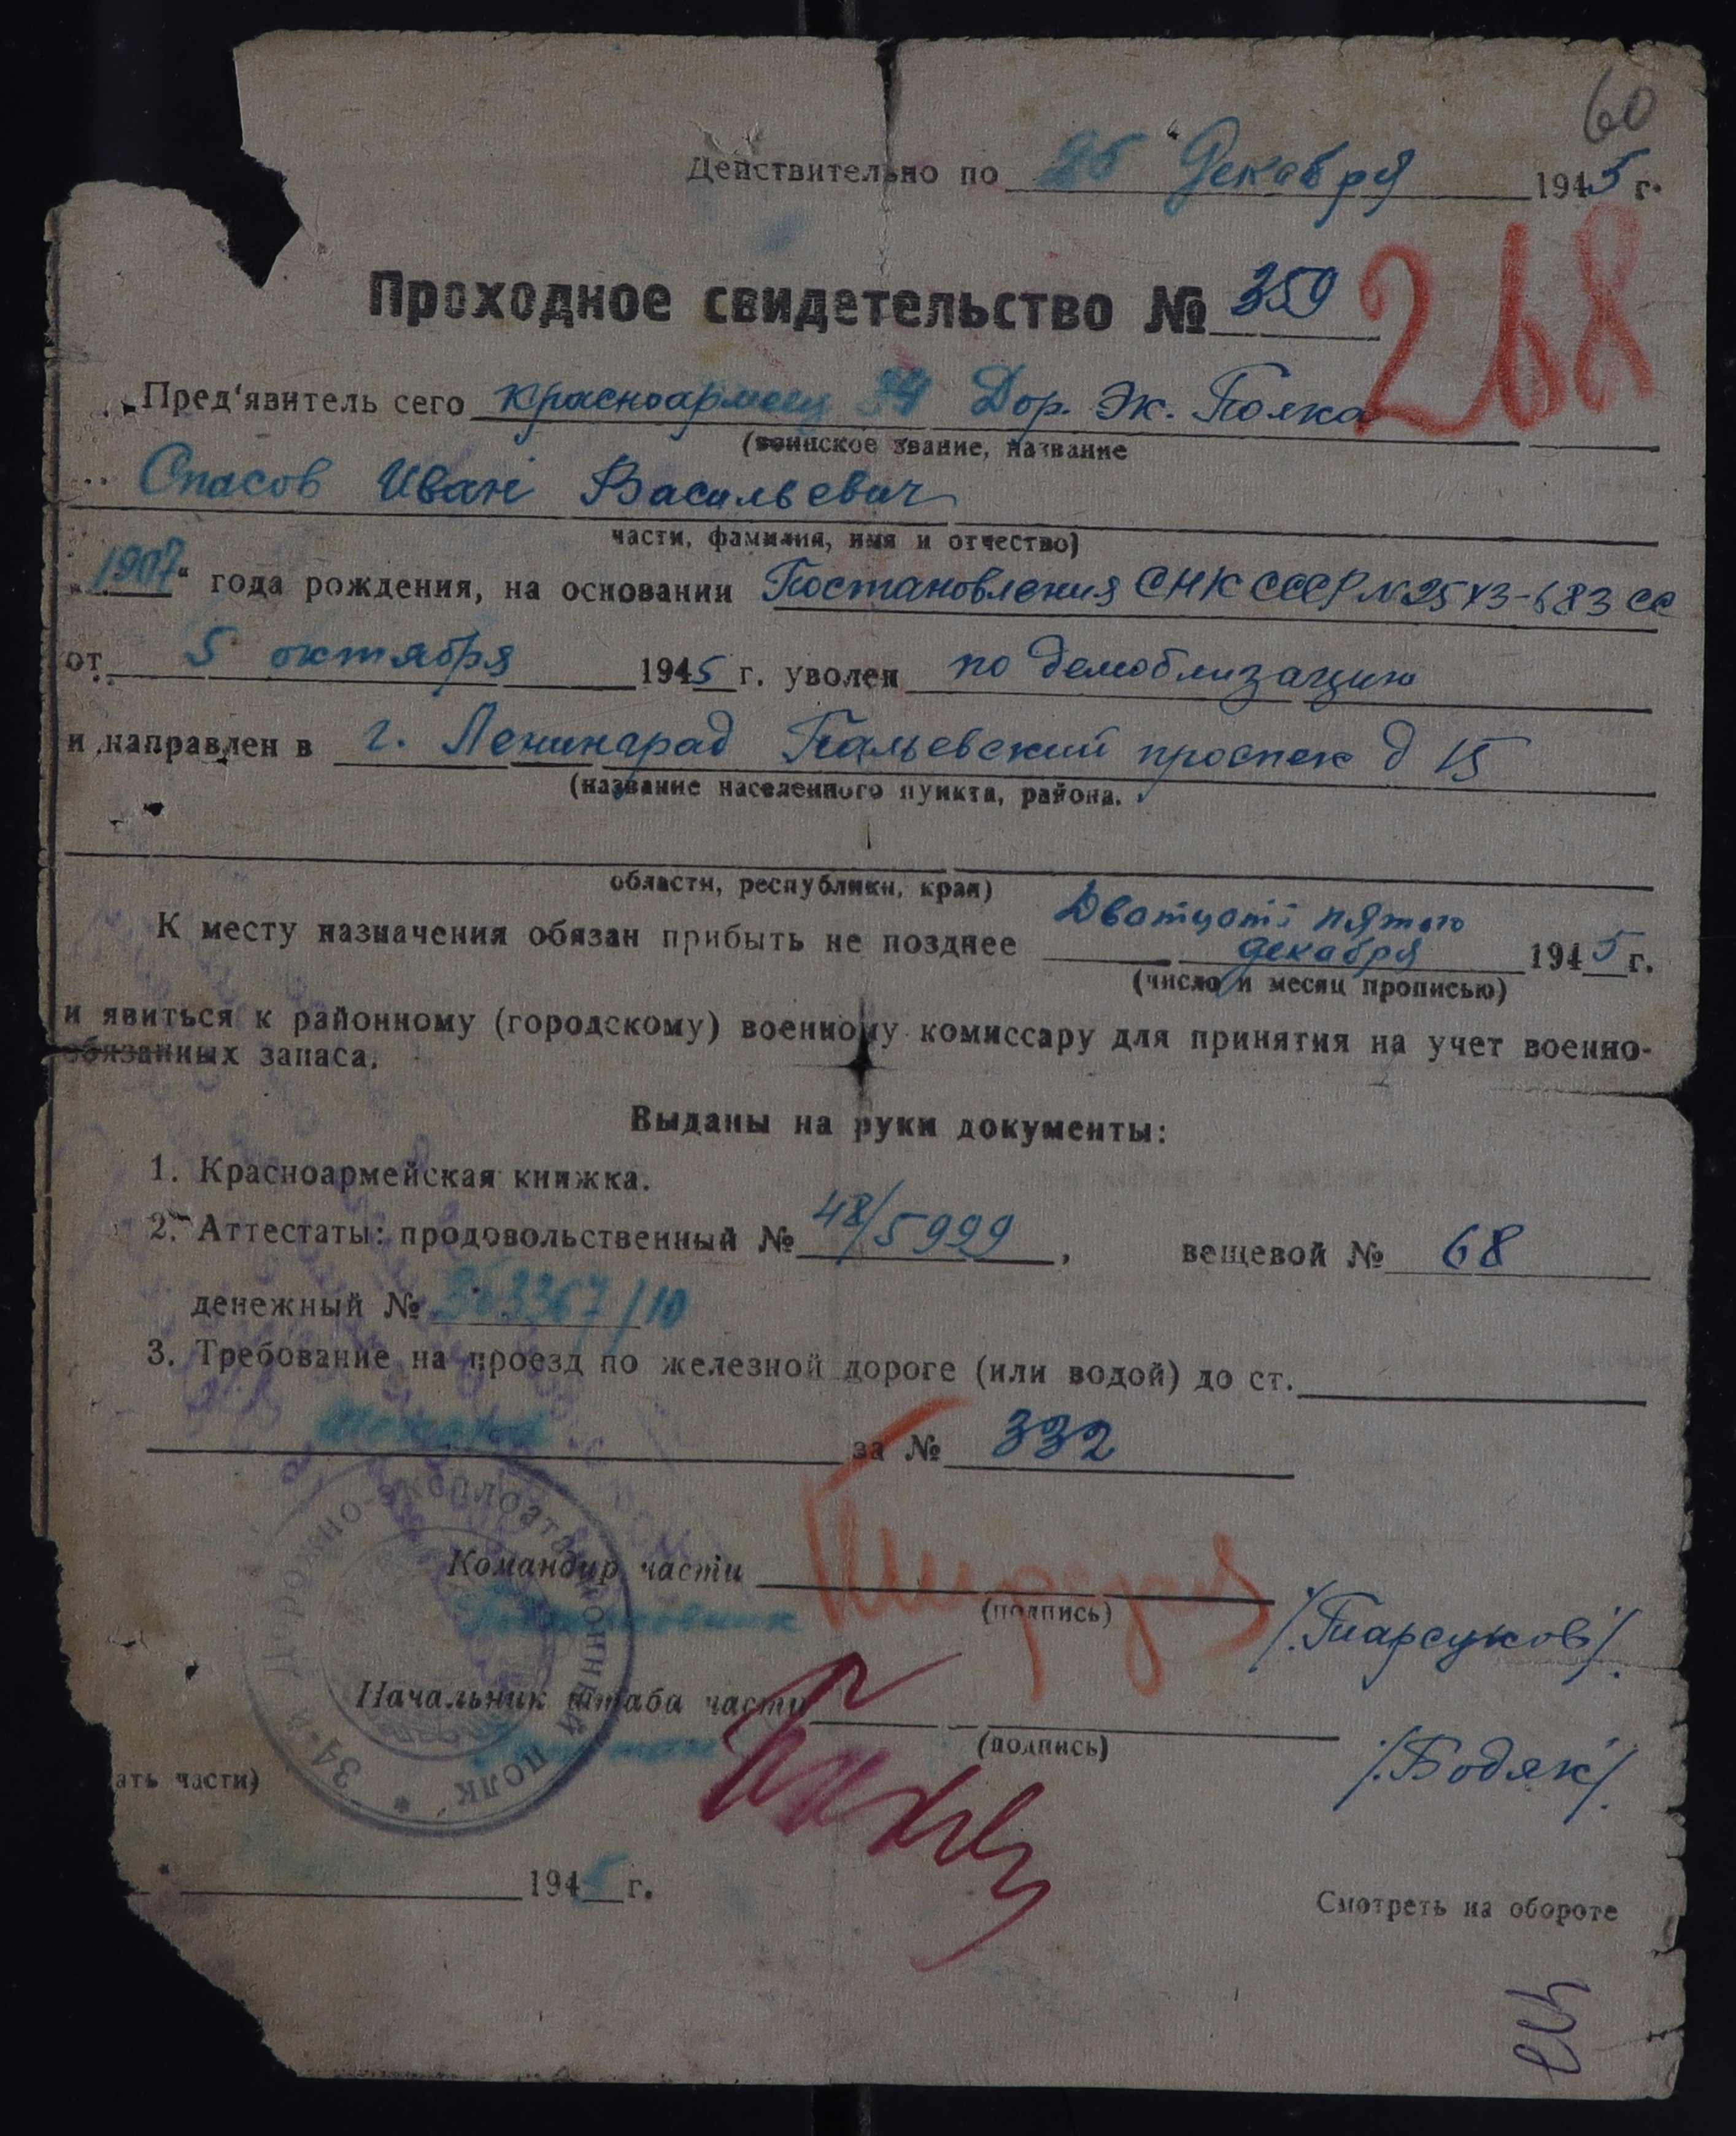 60
Действительно по 25 Декабря 1945 г.
Проходное свидетельство № 359
268
Пред'явитель сего красноармеец 34 Дор. Эк. Полка
(воинское звание, название
Спасов Иван Васильевич
части, фамилия, имя и отчество)
„1907“ года рождения, на основании Постановления СНК СССР №2543-683 сс
от 5 октября 1945 г. уволен по демоблизации
и направлен в г. Ленинград Пальевский проспек д 15
(название населенного пункта, района.
области, республики, края)
К месту назначения обязан прибыть не позднее Двотцоть пятого
декабря 1945 г.
(число и месяц прописью)
и явиться к районному (городскому) военному комиссару для принятия на учет военно-
обязанных запаса.
Выданы на руки документы:
1. Красноармейская книжка.
2. Аттестаты: продовольственный № 48/5999, вещевой № 68
денежный № 363367/10
3. Требование на проезд по железной дороге (или водой) до ст.
за № 332
Командир части
(подпись)
Подполковник
/Парсуков/
Начальник штаба части
(подпись)
/Бодяк/
34-й ДОРОЖНО-ЭКСПЛОАТАЦИОННЫЙ ПОЛК *
ать части)
1945 г.
Смотреть на обороте